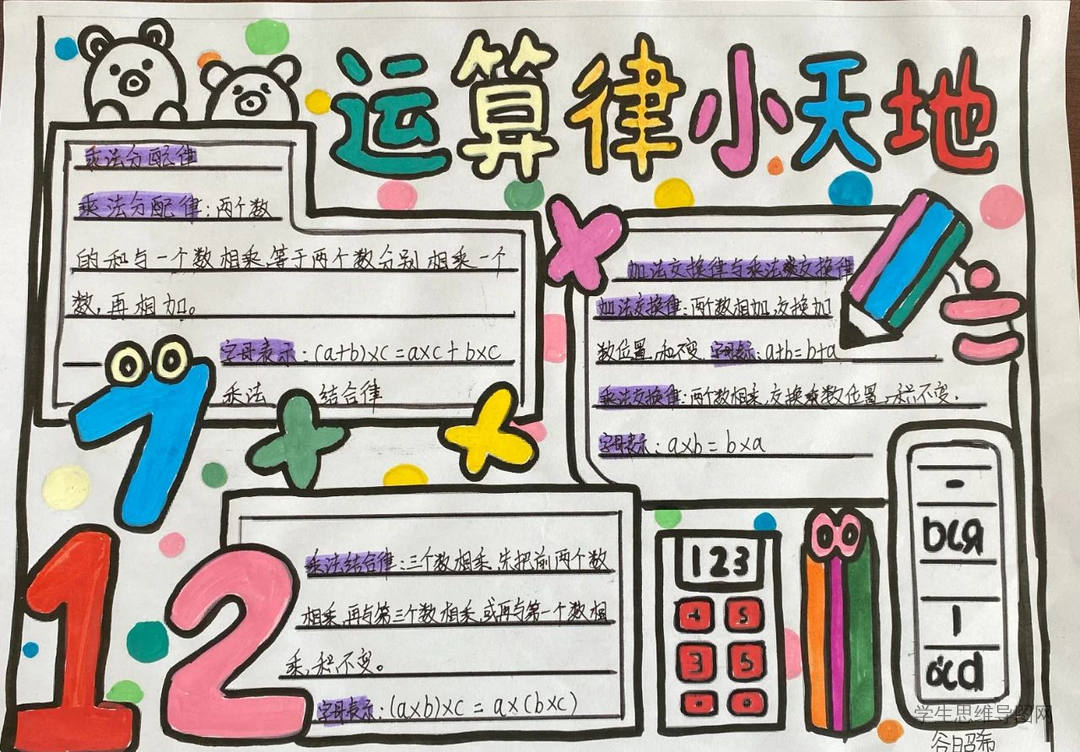 运算律小天地
乘法分配律
乘法分配律：两个数
的和与一个数相乘，等于两个数分别相乘一个
数，再相加。
字母表示：(a+b)×c=a×c+b×c
乘法 结合律
加法交换律与乘法交换律
加法交换律：两个数相加，交换加
数位置，和不变。字母表示：a+b=b+a
乘法交换律：两个数相乘，交换乘数位置，积不变。
字母表示：a×b=b×a
乘法结合律：三个数相乘，先把前两个数
相乘，再与第三个数相乘，或再与第一个数相
乘，积不变。
字母表示：(a×b)×c=a×(b×c)
7
12
123
+ 5
3 5
学生思维导图网